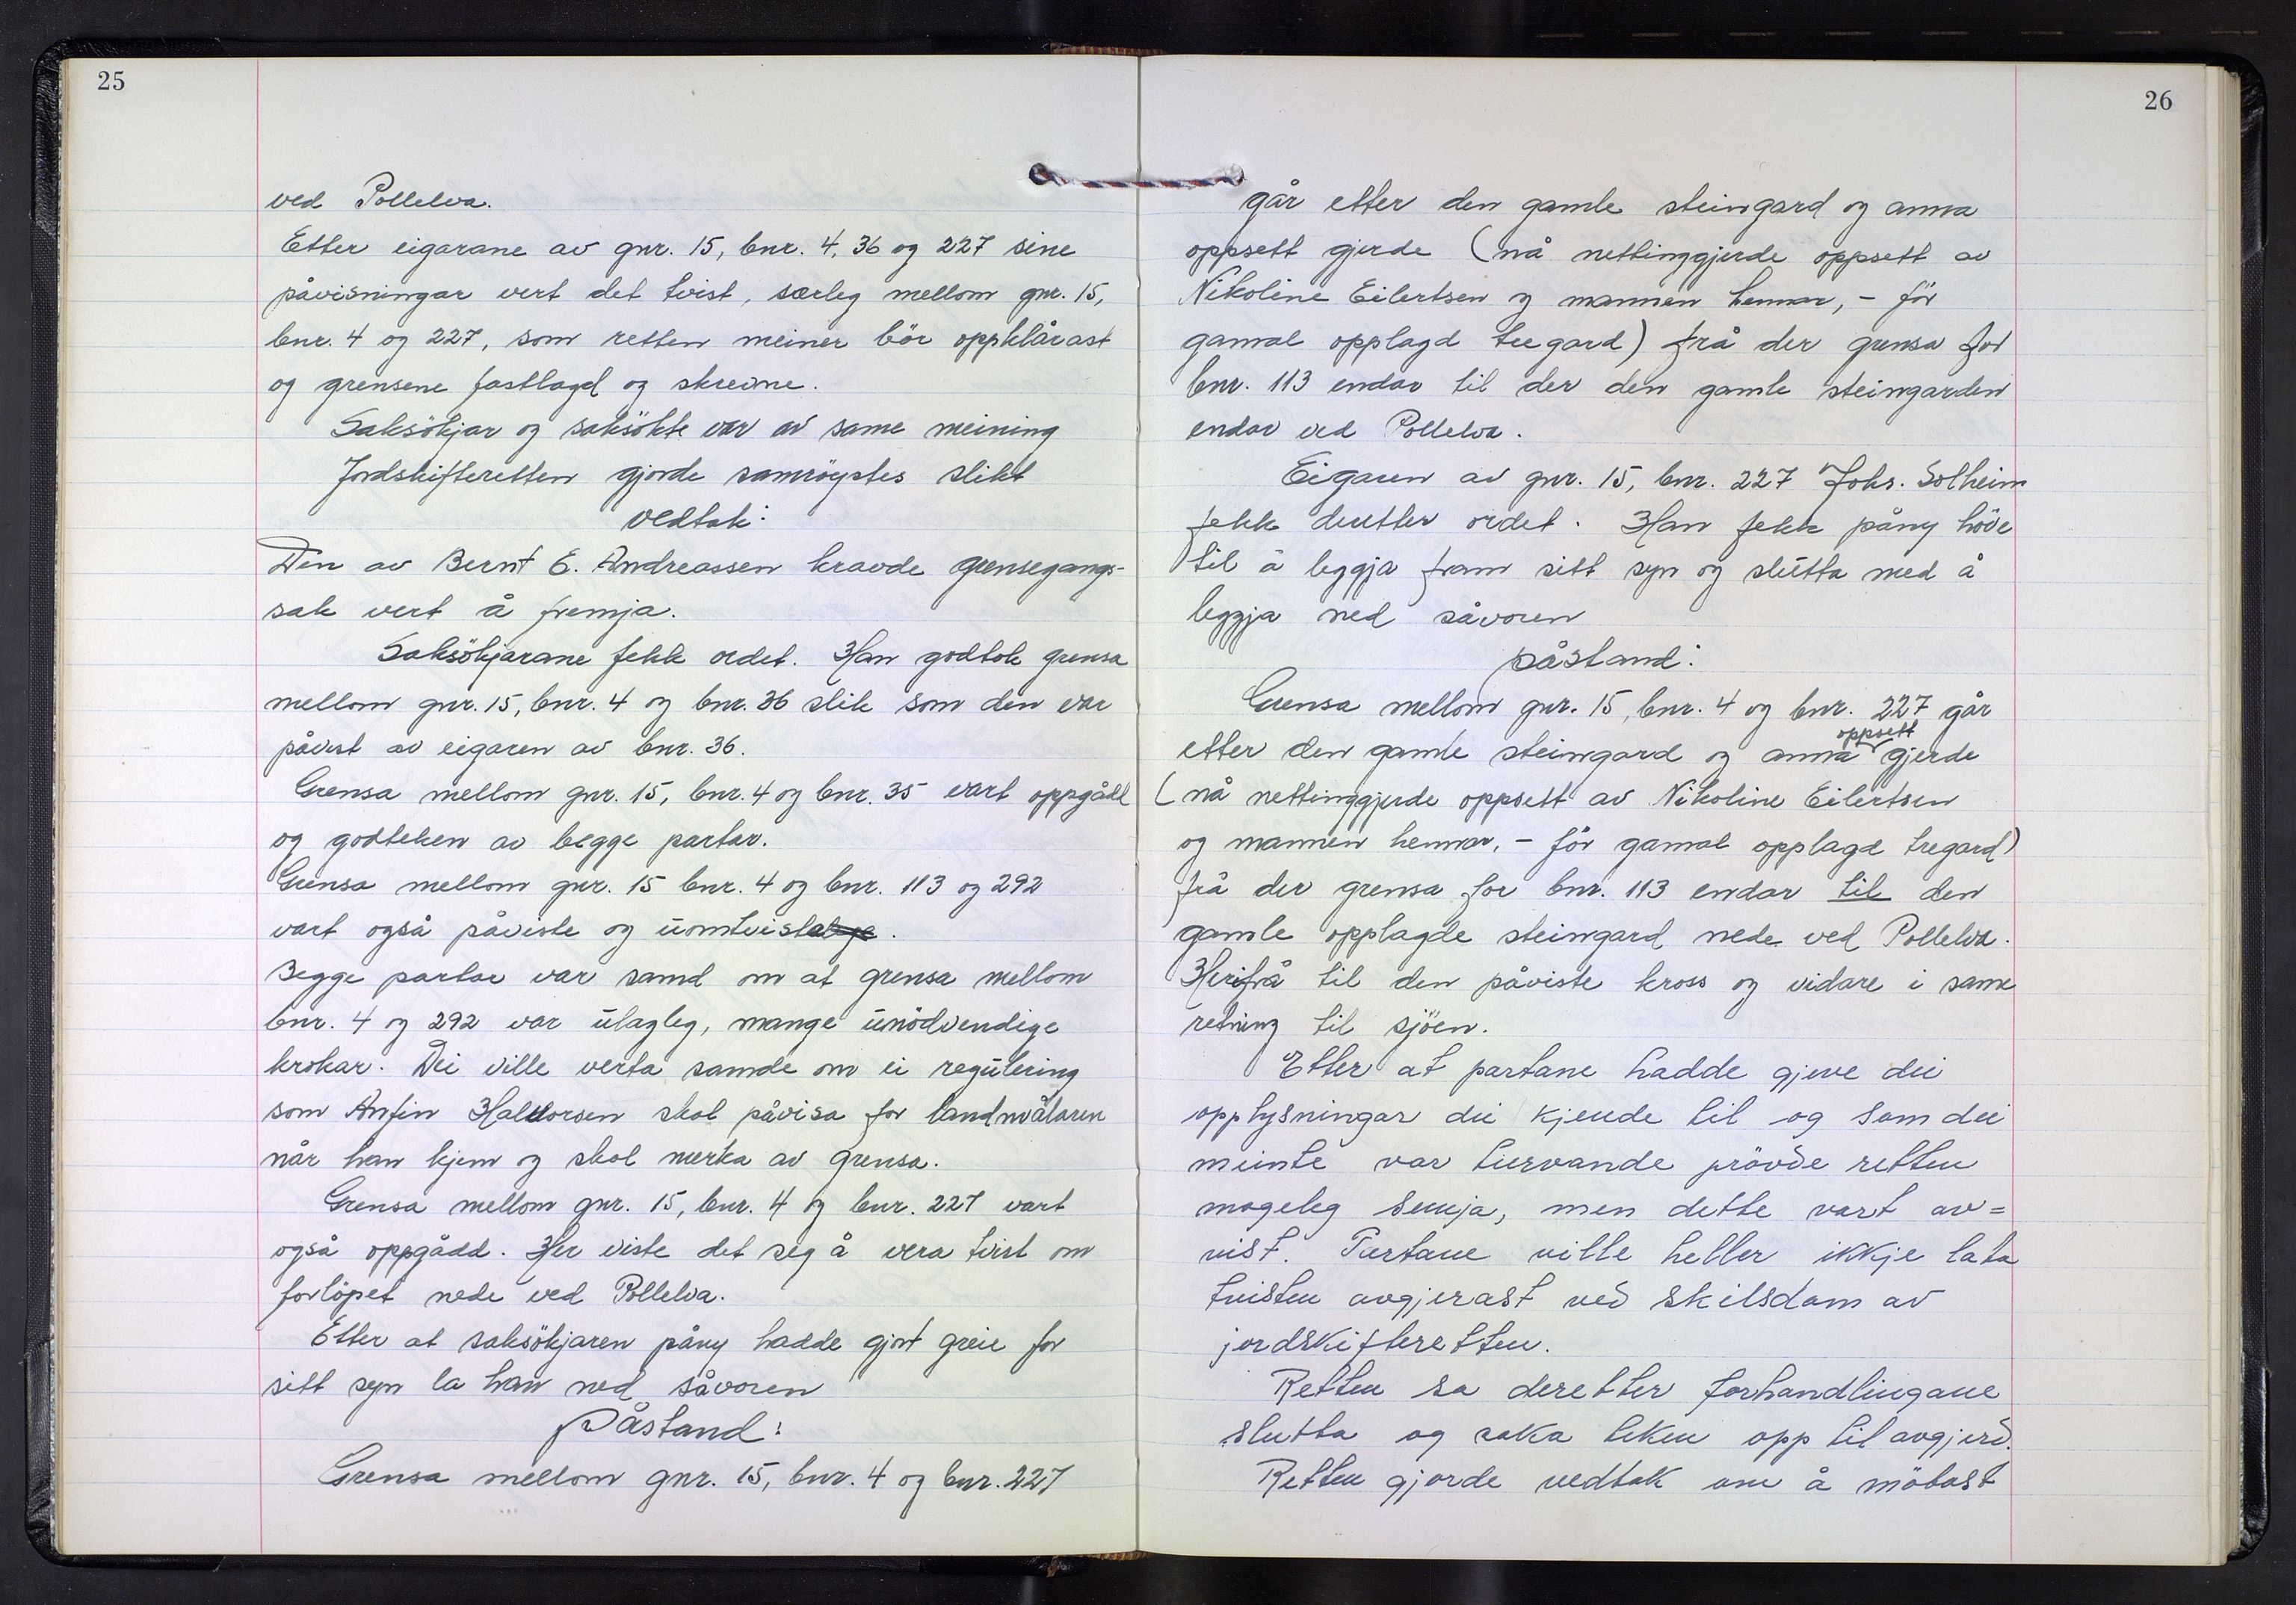 25
ved Pollelva.
Etter eigarane av gnr. 15, bnr. 4, 36 og 227 sine
påvisningar vert det tvist, særleg mellom gnr. 15,
bnr. 4 og 227, som retten meiner bör oppklårast
og grensene fastlagd og skrevne.
Saksökjar og saksökte var av same meining
Jordskifteretten gjorde samröystes slikt
vedtak:
Den av Bernt E. Andreassen kravde grensegangs-
sak vert å fremja.
Saksökjarane fekk ordet. Han godtok grensa
mellom gnr. 15, bnr. 4 og bnr. 36 slik som den var
påvist av eigaren av bnr. 36.
Grensa mellom gnr. 15, bnr. 4 og bnr. 35 vart oppgådd
og godteken av begge partar.
Grensa mellom gnr. 15 bnr. 4 og bnr. 113 og 292
vart også påviste og uomtvista.
Begge partar var samd om at grensa mellom
bnr. 4 og 292 var ulagleg, mange unödvendige
krokar. Dei ville verta samde om ei regulering
som Anfin Halvorsen skal påvisa for landmålaren
når han kjem og skal merka av grensa.
Grensa mellom gnr. 15, bnr. 4 og bnr. 227 vart
også oppgådd. Her viste det seg å vera tvist om
forlöpet nede ved Pollelva.
Etter at saksökjaren påny hadde gjort greie for
sitt syn la han ned såvoren
Påstand:
Grensa mellom gnr. 15, bnr. 4 og bnr. 227
26
går etter den gamle steingard og anna
oppsett gjerde (nå nettinggjerde oppsett av
Nikoline Eilertsen og mannen hennar, - för
gamal opplagd tregard) frå der grensa for
bnr. 113 endar til der den gamle steingarden
endar ved Pollelva.
Eigaren av gnr. 15, bnr. 227 Johs. Solheim
fekk deretter ordet. Han fekk påny höve
til å leggja fram sitt syn og slutta med å
leggja ned såvoren
påstand:
Grensa mellom gnr. 15, bnr. 4 og bnr. 227 går
etter den gamle steingard og anna oppsett gjerde
(nå nettinggjerde oppsett av Nikoline Eilertsen
og mannen hennar, - för gamal opplagd tregard)
frå der grensa for bnr. 113 endar til den
gamle opplagde steingard nede ved Pollelva.
Herifrå til den påviste kross og vidare i same
retning til sjöen.
Etter at partane hadde gjeve dei
opplysningar dei kjende til og som dei
meinte var turvande prövde retten
mogeleg semja, men dette vart av=
vist. Partane ville heller ikkje lata
tvisten avgjerast ved skilsdom av
jordskifteretten.
Retten sa deretter forhandlingane
slutta og saka teken opp til avgjerd.
Retten gjorde vedtak om å mötast